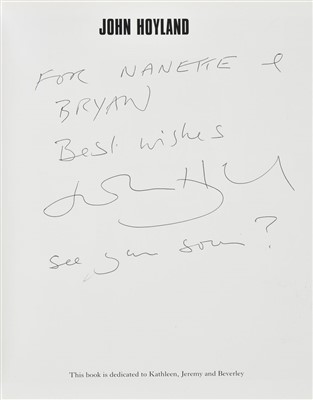 JOHN HOYLAND
FOR NANETTE &
BRYAN
Best wishes
John H
see you soon?
This book is dedicated to Kathleen, Jeremy and Beverley